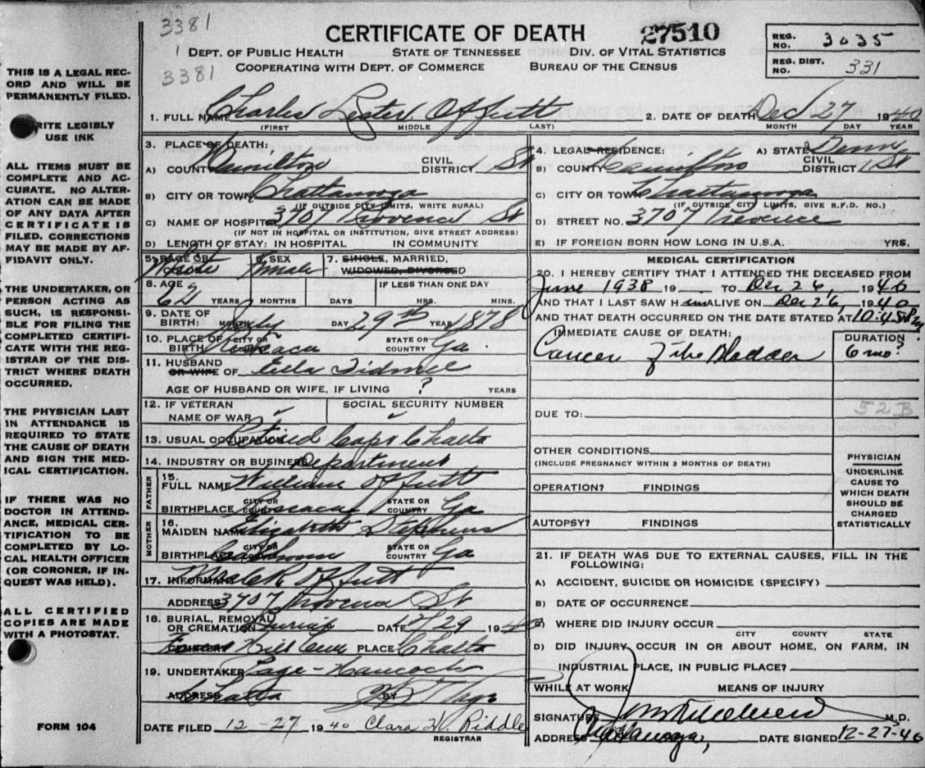 3381
1
3381
CERTIFICATE OF DEATH
27510
DEPT. OF PUBLIC HEALTH STATE OF TENNESSEE DIV. OF VITAL STATISTICS
COOPERATING WITH DEPT. OF COMMERCE BUREAU OF THE CENSUS
REG. NO. 3035
REG. DIST. NO. 331
THIS IS A LEGAL REC-
ORD AND WILL BE
PERMANENTLY FILED.
WRITE LEGIBLY
USE INK
ALL ITEMS MUST BE
COMPLETE AND AC-
CURATE. NO ALTER-
ATION CAN BE MADE
OF ANY DATA AFTER
CERTIFICATE IS
FILED. CORRECTIONS
MAY BE MADE BY AF-
FIDAVIT ONLY.
THE UNDERTAKER, OR
PERSON ACTING AS
SUCH, IS RESPONSI-
BLE FOR FILING THE
COMPLETED CERTIFI-
CATE WITH THE REG-
ISTRAR OF THE DIS-
TRICT WHERE DEATH
OCCURRED.
THE PHYSICIAN LAST
IN ATTENDANCE IS
REQUIRED TO STATE
THE CAUSE OF DEATH
AND SIGN THE MED-
ICAL CERTIFICATION.
IF THERE WAS NO
DOCTOR IN ATTEND-
ANCE, MEDICAL CER-
TIFICATION TO BE
COMPLETED BY LO-
CAL HEALTH OFFICER
(OR CORONER, IF IN-
QUEST WAS HELD).
ALL CERTIFIED
COPIES ARE MADE
WITH A PHOTOSTAT.
FORM 104
1. FULL NAME Charles Lester Offutt
(FIRST) MIDDLE LAST)
2. DATE OF DEATH Dec 27 1940
MONTH DAY YEAR
3. PLACE OF DEATH:
A) COUNTY Hamilton CIVIL DISTRICT 1 St
B) CITY OR TOWN Chattanooga
(IF OUTSIDE CITY LIMITS, WRITE RURAL)
C) NAME OF HOSPITAL 3707 St
(IF NOT IN HOSPITAL OR INSTITUTION, GIVE STREET ADDRESS)
D) LENGTH OF STAY: IN HOSPITAL IN COMMUNITY
4. LEGAL RESIDENCE: A) STATE Tenn
B) COUNTY Hamilton CIVIL DISTRICT 1 St
C) CITY OR TOWN Chattanooga
(IF OUTSIDE CITY LIMITS, GIVE R.F.D. NO.)
D) STREET NO. 3707
E) IF FOREIGN BORN HOW LONG IN U.S.A. YRS.
5. RACE OR White 6. SEX male 7. SINGLE, MARRIED,
WIDOWED, DIVORCED
8. AGE 62 YEARS MONTHS DAYS IF LESS THAN ONE DAY HRS. MINS.
9. DATE OF
BIRTH: MONTH July DAY 29th YEAR 1878
10. PLACE OF CITY OR
BIRTH Resaca STATE OR COUNTRY Ga.
11. HUSBAND
OR WIFE OF Lula Tidwell
AGE OF HUSBAND OR WIFE, IF LIVING ? YEARS
12. IF VETERAN
NAME OF WAR SOCIAL SECURITY NUMBER
13. USUAL OCCUPATION Retired Capt Chatta
14. INDUSTRY OR BUSINESS Department
FATHER
15.
FULL NAME William Offutt
BIRTHPLACE CITY OR Resaca STATE OR COUNTRY Ga
MOTHER
16.
MAIDEN NAME Elizabeth
BIRTHPLACE CITY OR STATE OR COUNTRY Ga
17. INFORMANT Offutt
ADDRESS 3707 St
18. BURIAL, REMOVAL
OR CREMATION Burial DATE 12/29 1940
Forest Hill Cem PLACE Chatta
19. UNDERTAKER Hancock
ADDRESS Chatta BY
DATE FILED 12-27 1940 Clara W. Riddle
REGISTRAR
MEDICAL CERTIFICATION
20. I HEREBY CERTIFY THAT I ATTENDED THE DECEASED FROM
June 1938 19 TO Dec 26, 1940
AND THAT I LAST SAW HIM ALIVE ON Dec 26, 1940
AND THAT DEATH OCCURRED ON THE DATE STATED AT 10:45 P.M.
IMMEDIATE CAUSE OF DEATH: DURATION
Cancer of the Bladder 6 mo?
DUE TO: 52B
OTHER CONDITIONS
(INCLUDE PREGNANCY WITHIN 3 MONTHS OF DEATH)
OPERATION? FINDINGS
AUTOPSY? FINDINGS
PHYSICIAN
UNDERLINE
CAUSE TO
WHICH DEATH
SHOULD BE
CHARGED
STATISTICALLY
21. IF DEATH WAS DUE TO EXTERNAL CAUSES, FILL IN THE
FOLLOWING:
A) ACCIDENT, SUICIDE OR HOMICIDE (SPECIFY)
B) DATE OF OCCURRENCE
C) WHERE DID INJURY OCCUR
CITY COUNTY STATE
D) DID INJURY OCCUR IN OR ABOUT HOME, ON FARM, IN
INDUSTRIAL PLACE, IN PUBLIC PLACE?
WHILE AT WORK MEANS OF INJURY
SIGNATURE M.D.
ADDRESS Chattanooga, DATE SIGNED 12-27-40